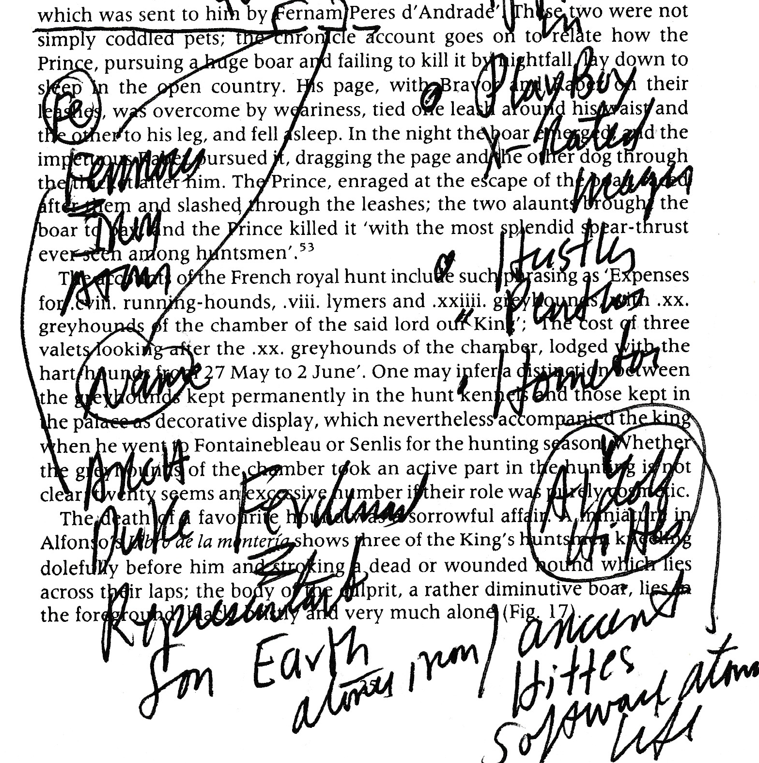 which was sent to him by Fernam Peres d'Andrade'. These two were not
simply coddled pets; the chronicle account goes on to relate how the
Prince, pursuing a huge boar and failing to kill it by nightfall, lay down to
sleep in the open country. His page, with Bravor and on their
leashes, was overcome by weariness, tied one leash around his waist and
the other to his leg, and fell asleep. In the night the boar emerged, and the
impetuous pursued it, dragging the page and the other dog through
the thicket after him. The Prince, enraged at the escape of the
after them and slashed through the leashes; the two alaunts brought the
boar to bay, and the Prince killed it 'with the most splendid spear-thrust
ever seen among huntsmen'.53
The accounts of the French royal hunt include such phrasing as 'Expenses
for .cviii. running-hounds, .viii. lymers and .xxiiii. greyhounds, with .xx.
greyhounds of the chamber of the said lord our King'; 'The cost of three
valets looking after the .xx. greyhounds of the chamber, lodged with the
hart hounds from 27 May to 2 June'. One may infer a distinction between
the greyhounds kept permanently in the hunt kennels and those kept in
the palace as decorative display, which nevertheless accompanied the king
when he went to Fontainebleau or Senlis for the hunting season. Whether
the greyhounds of the chamber took an active part in the hunting is not
clear; twenty seems an excessive number if their role was purely cosmetic.
The death of a favourite hound was a sorrowful affair. A miniature in
Alfonso's Libro de la montería shows three of the King's huntsmen kneeling
dolefully before him and stroking a dead or wounded hound which lies
across their laps; the body of the culprit, a rather diminutive boar, lies in
the foreground, black and very much alone (Fig. 17).
Fe
Iron
Atom
Name
Arch
Duke Ferdinand
Representant
for Earth
atoms iron
PlayBoy
X-Rated
Hustler
ancient
Hittes
Software atom
life